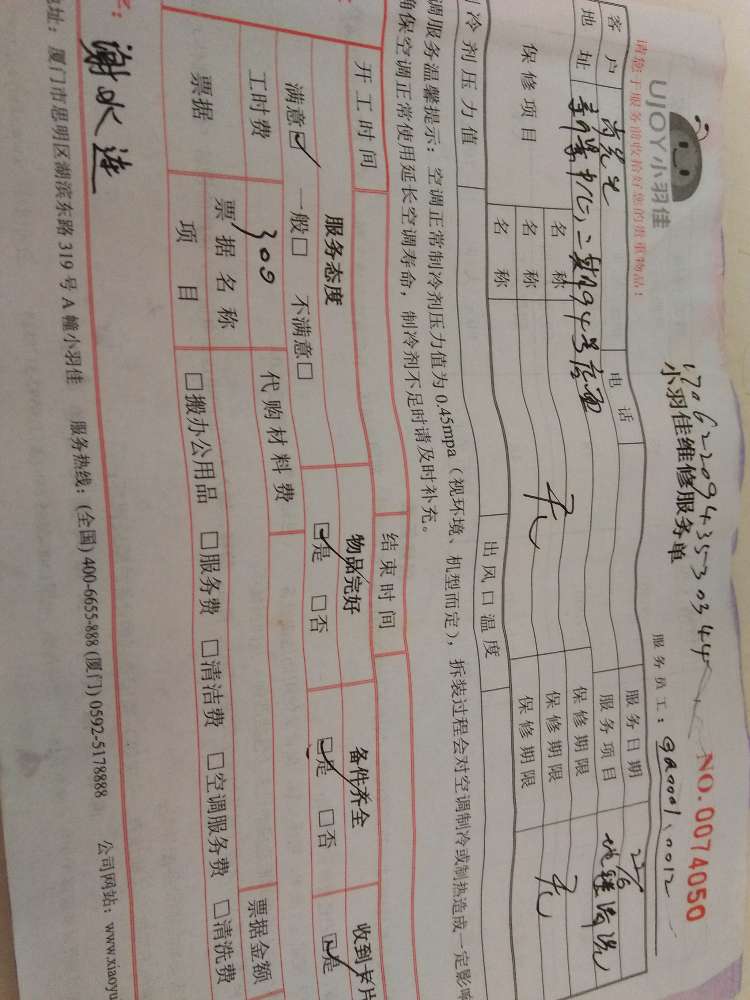 UJOY小羽佳
1706220943530344
小羽佳维修服务单
NO.0074050
请您于服务前收拾好您的贵重物品！
服务员工：
客户
电话
服务日期
地址
服务项目
地毯清洗
保修项目
名称
无
保修期限
无
名称
保修期限
名称
保修期限
制冷剂压力值
出风口温度
调服务温馨提示：空调正常制冷剂压力值为0.45mpa（视环境、机型而定），拆装过程会对空调制冷或制热造成一定影响
确保空调正常使用延长空调寿命，制冷剂不足时请及时补充。
开工时间
结束时间
服务态度
物品完好
备件齐全
收到卡片
满意☑ 一般□ 不满意□
☑是 □否
☑是 □否
☑是
工时费
300
代购材料费
票据
票据名称
票据金额
项目
□搬办公用品 □服务费 □清洁费 □空调服务费 □清洗费
谢水连
地址：厦门市思明区湖滨东路319号A幢小羽佳 服务热线：(全国) 400-6655-888 (厦门) 0592-5178888 公司网站：www.xiaoyu